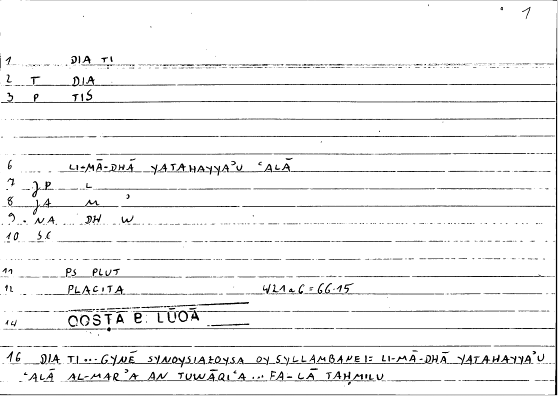 1
1 DIA TI
2 T DIA
3 P TIS
6 LI-MĀ-DHĀ YATAHAYYAʾU ʿALĀ
7 JP L
8 JA M ʾ
9 NA DH W
10 SC
11 PS PLUT
12 PLACITA 421a6=66.15
14 QOSṬA B. LŪQĀ
16 DIA TI... GYNĒ SYNOYSIAZOYSA OY SYLLAMBANEI= LI-MĀ-DHĀ YATAHAYYAʾU
ʿALĀ AL-MARʾA AN TUWĀQIʿA... FA-LĀ TAḤMILU